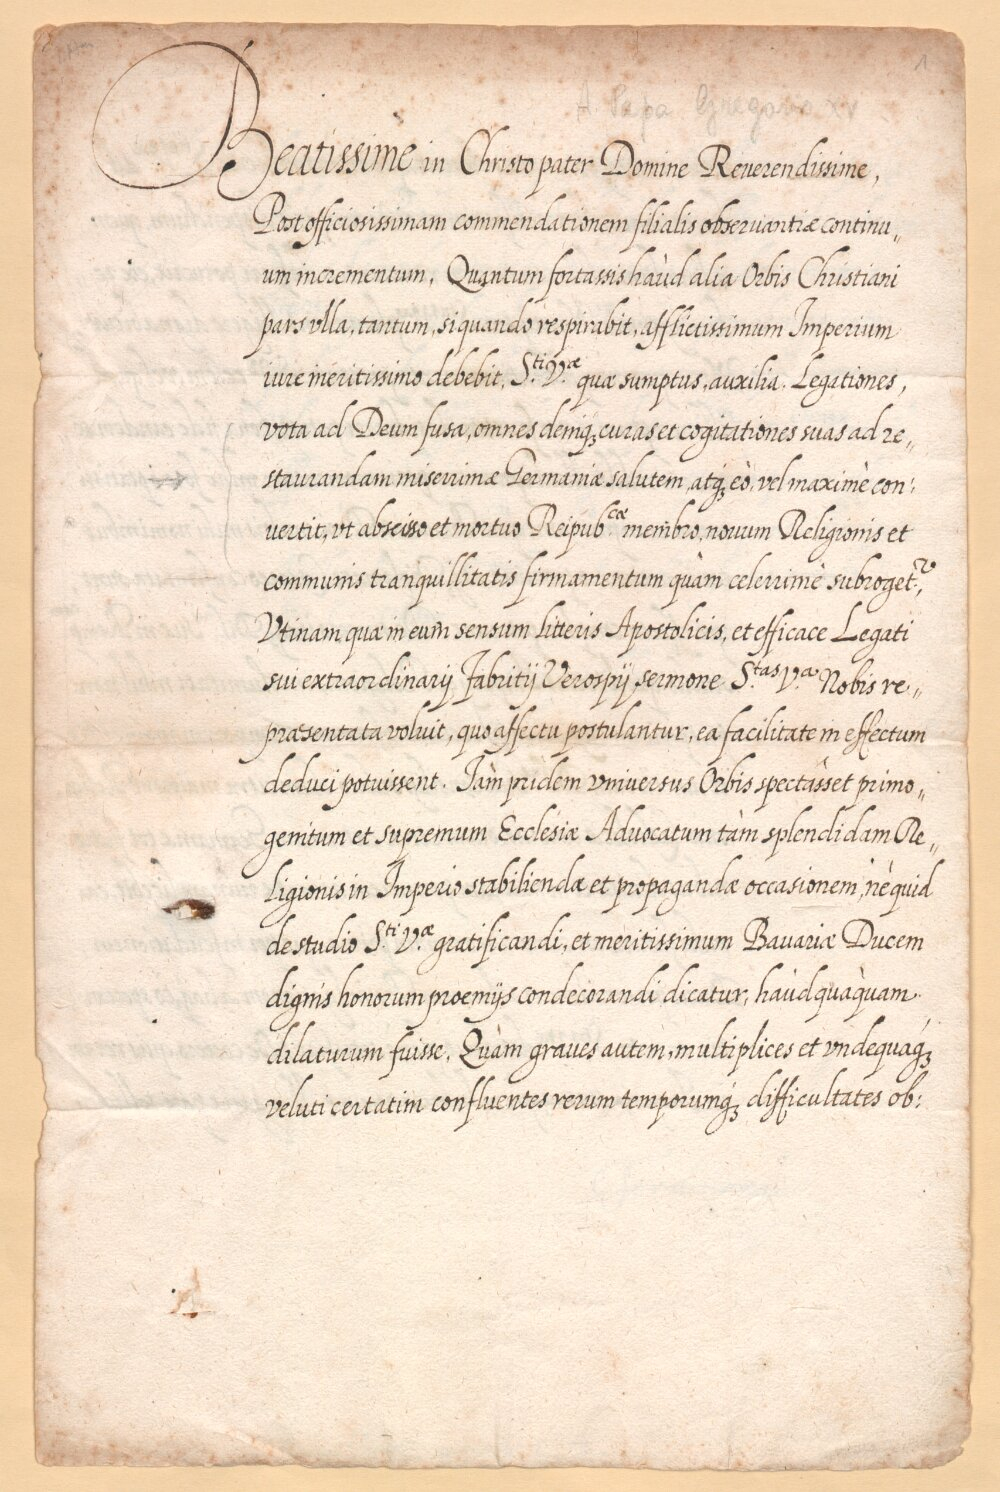 1
A Papa Gregorio XV
Beatissime in Christo pater Domine Reuerendissime,
Post officiosissimam commendationem filialis obseruantiæ continu„
um incrementum. Quantum fortassis haùd alia Orbis Christiani
pars vlla, tantum, siquando respirabit, afflictissimum Imperium
iure meritissimo debebit, S.ti V.æ quæ sumptus, auxilia, Legationes,
vota ad Deum fusa, omnes deniq; curas et cogitationes suas ad re„
staurandam miserrimæ Germaniæ salutem, atq; eò, vel maximè con„
vertit, vt abscisso et mortuo Reipub.cæ membro, nouum Religionis et
communis tranquillitatis firmamentum quàm celerrimè subroget.r,
Vtinam quæ in eum̃ sensum litteris Apostolicis, et efficace Legati
sui extraordinarij Fabritij Verospij sermone S.tas V.a Nobis re„
præsentata voluit, quo affectu postulantur, ea facilitate in effectum
deduci potuissent. Iàm pridem vniversus Orbis spectàsset primo„
genitum et supremum Ecclesiæ Advocatum tàm splendidam Re„
ligionis in Imperio stabiliendæ et propagandæ occasionem, nè quid
de studio S.ti V.æ gratificandi, et meritissimum Bavariæ Ducem
dignis honorum proemijs condecorandi dicatur, haùdquàquam
dilaturum fuisse. Quàm graves autem, multiplices et vndequaq;
veluti certatim confluentes rerum temporumq; difficultates ob: